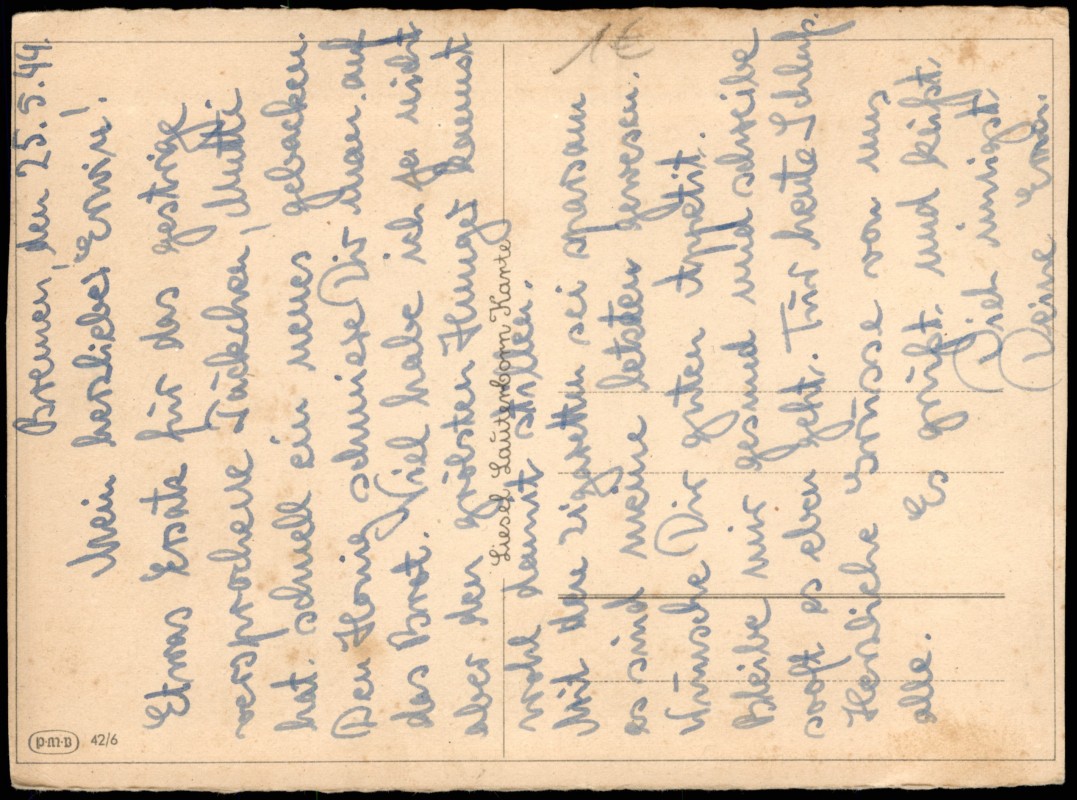 Bremen, den 25.5.44.
Mein herzlieber Erwin!
Etwas Erstz für das gestrige
versprochene Päckchen, Mutti
hat schnell ein neues gebacken.
Den Honig schmiere Dir man auf
das Brot. Viel habe ich ja nicht
aber den größten Hunger kannst
wohl damit stillen.
Mit den Zigaretten sei sparsam
es sind meine letzten gewesen.
Wünsche Dir guten Appetit.
Bleibe mir gesund und schreibe
sooft es eben geht. Für heute Schluß.
Herzliche Grüsse von uns
alle. Es grüßt und küßt
Dich innigst
Deine
Liesel Lautenborn Karte
p·m·b 42/6
1€